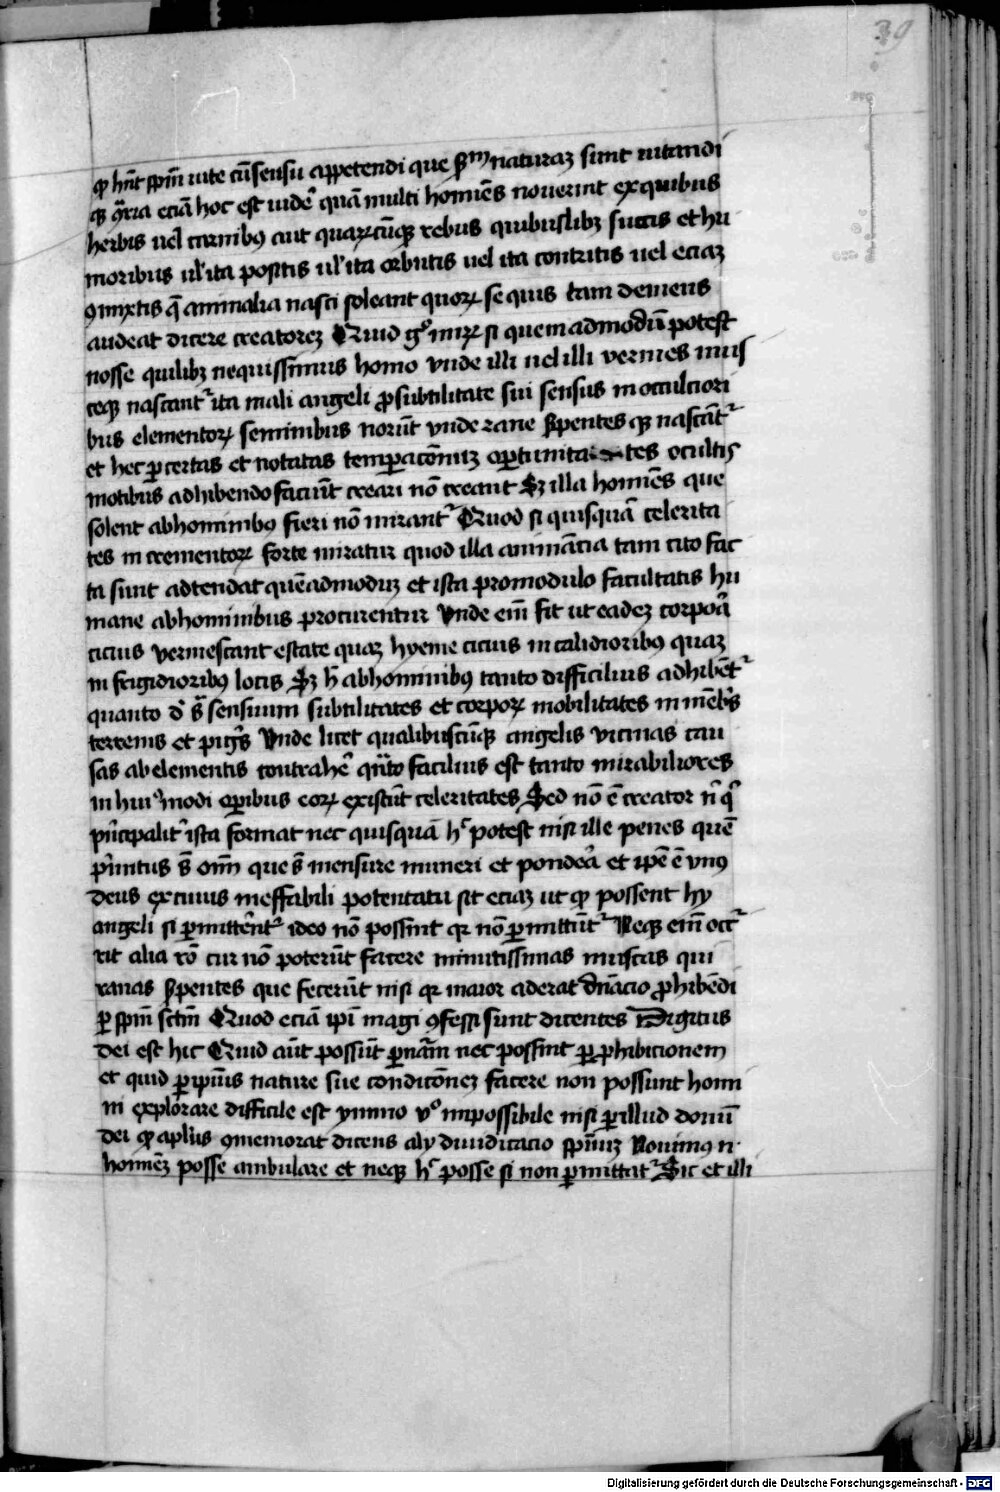 39
qͥ hn̄t sp̄m vite cū sensu appetendi que sᵐ naturaꝫ sunt vitandi
qꝫ ꝯͣria eciā hoc est videꝰ quā multi homīes noverint ex quibus
herbis vel carnibꝰ aut quarūcūqꝫ rebus quibuslibꝫ succis et hu
moribus ul' ita positis ul' ita obrutis vel ita contritis vel eciaꝫ
ꝯmixtis q̄ animalia nasci soleant quoꝝ se quis tam demens
audeat dicere creatoreꝫ Quid gͦ miꝝ si quemadmodū potest
nosse quilibꝫ nequissimus homo vnde illi vel illi vermes mus
ceqꝫ nascant᷑ ita mali angeli ꝓ subtilitate sui sensus in occulciori
bus elementoꝝ seminibus norūt vnde rane s̄pentes qꝫ nascāt᷑
et hec ꝑ certas et notatas temꝑacōnuꝫ oꝑtunitates ocultis
motibus adhibendo faciūt creari nō creant Sꝫ illa homīes que
solent ab hominibꝰ fieri nō mirant᷑ Quod si quisquā celerita
tes in crementoꝝ forte miratur quod illa animācia tam cito fac
ta sunt adtendat quēadmoduꝫ et ista pro modulo facultatis hu
mane ab hominibus procurentur Vnde em̄ fit ut eadeꝫ corpoꝛā
cicius vermescant estate quaꝫ hyeme cicius in calidioribꝰ quaꝫ
in frigidioribꝰ locis Sꝫ h̄ ab hominibꝰ tanto difficilius adhibēt᷑
quanto dͥ sͣ sensuum subtilitates et corpoꝝ mobilitates in mēbꝰs
terrenis et pigꝰs Vnde licet qualibuscūqꝫ angelis vicinas cau
sas ab elementis contrahē qͣnto facilius est tanto mirabiliores
in huiꝰmodi oꝑibus eoꝝ existūt celeritates Sed nō ē creator n̄ qͥ
pͥncipalit᷑ ista format nec quisquā hͦ potest nisi ille penes quē
pͥmitus s̄ om̄ que s̄ mensure numeri et pondeꝛā et ip̄e ē vnꝰ
deus ex cuius ineffabili potentatu fit eciaꝫ ut qͥ possent hy
angeli si ꝑmitterēt᷑ ideo nō possint qꝛ nō ꝑmittūt᷑ Neqꝫ em̄ occ᷑
rit alia rō cur nō poterūt facere minutissimas muscas qui
ranas s̄pentes que fecerūt nisi qꝛ maior aderat dn̄acio ꝓhibēdi
ꝑ sp̄m sc̄tm̄ Quod eciā ip̄i magi ꝯfessi sunt dicentes Digitus
dei est hic Quid aūt possūt ꝑ nāꝫ nec possint ꝑ ꝓhibicionem
et quid ꝑ ip̄ius nature sue condicōneꝫ facere non possunt homi
ni explorare difficile est ymmo vͦ impossibile nisi ꝑ illud donū
dei qͥ apl'us ꝯmemorat dicens aly diiudicacio sp̄uuꝫ Novimꝰ n·
homīeꝫ posse ambulare et neqꝫ hͦ posse si non ꝑmittat᷑ Sic et illi
Digitalisierung gefördert durch die Deutsche Forschungsgemeinschaft - DFG